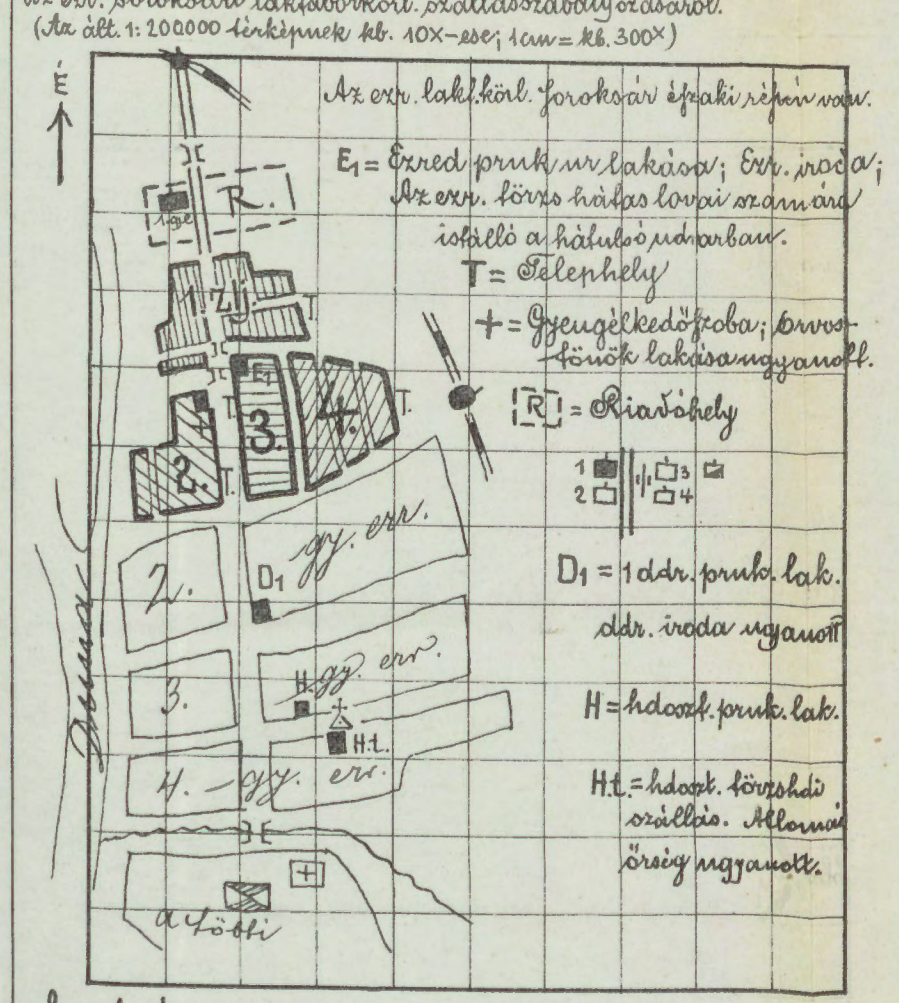 az ezr. soroksári laktáborkörl. szállásszabályozásáról.
(Az ált. 1:200000 térképnek kb. 10X-ese; 1cm = kb. 300ˣ)
É
Az ezr. lakt.körl. Soroksár északi részén van.
E1 = Ezred pruk ur lakása; Ezr. iroda;
Az ezr. törzs hátas lovai számára
istálló a hátulsó udvarban.
T = Telephely
+ = Gyengélkedőszoba; orvos-
főnök lakása ugyanott.
R = Riadóhely
1
2
3
4
D1 = 1 ddr. pruk. lak.
ddr. iroda ugyanott
H = hdoszt. pruk. lak.
H.t. = hdoszt. törzshdi
szállás. Állomás
őrség ugyanott.
R.
1. zlj.
T.
E1
T.
3.
4.
T.
2.
T.
gy. ezr.
2.
D1
gy. ezr.
3.
H.
H.t.
4. - gy. ezr.
Duna
+
a többi